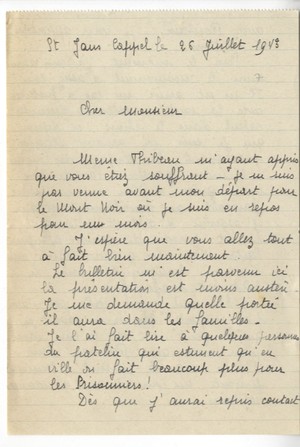 St Jans Cappel le 25 Juillet 1943
7
Cher Monsieur
Meme Thibeau m'ayant appris
que vous étiez souffrant - je ne suis
pas venue avant mon départ pour
le Mont Noir où je suis en repos
pour un mois.
J'espère que vous allez tout
à fait bien maintenant.
Le bulletin m'est parvenu ici
la présentation est moins austère.
Je me demande quelle portée
il aura dans les familles -
Je l'ai fait lire à quelques personnes
du patelin qui estiment qu'en
ville on fait beaucoup plus pour
les Prisonniers!
Dès que j'aurai repris contact